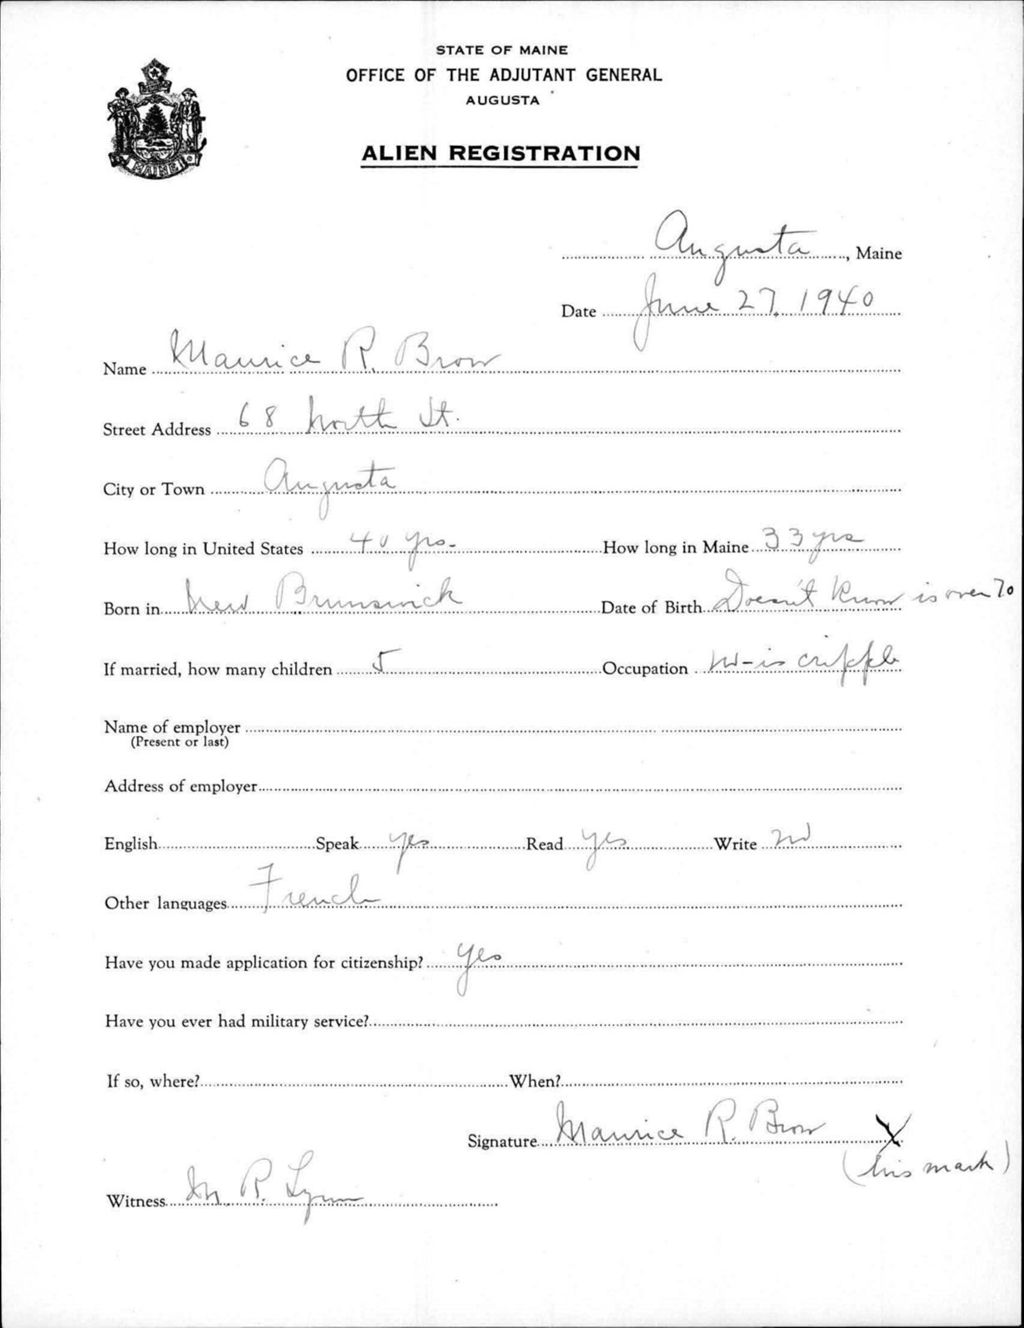 STATE OF MAINE
OFFICE OF THE ADJUTANT GENERAL
AUGUSTA
ALIEN REGISTRATION
MAINE
Augusta, Maine
Date June 27, 1940
Name Maurice R. Brow
Street Address 68 North St.
City or Town Augusta
How long in United States 40 yrs. How long in Maine 33 yrs
Born in New Brunswick Date of Birth Doesn't know is over 70
If married, how many children 5 Occupation no-is cripple
Name of employer
(Present or last)
Address of employer
English Speak yes Read yes Write no
Other languages French
Have you made application for citizenship? yes
Have you ever had military service?
If so, where? When?
Signature Maurice R. Brow X
(his mark)
Witness M. R. Lynn